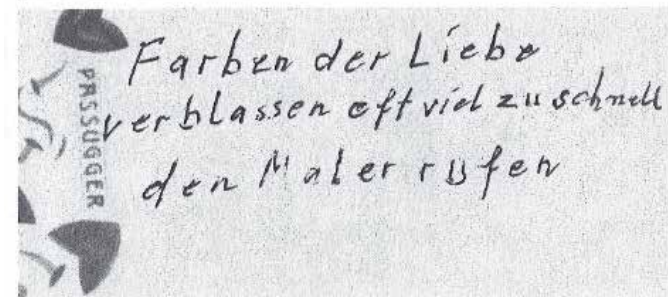 PASSUGGER
Farben der Liebe
verblassen oft viel zu schnell
den Maler rufen